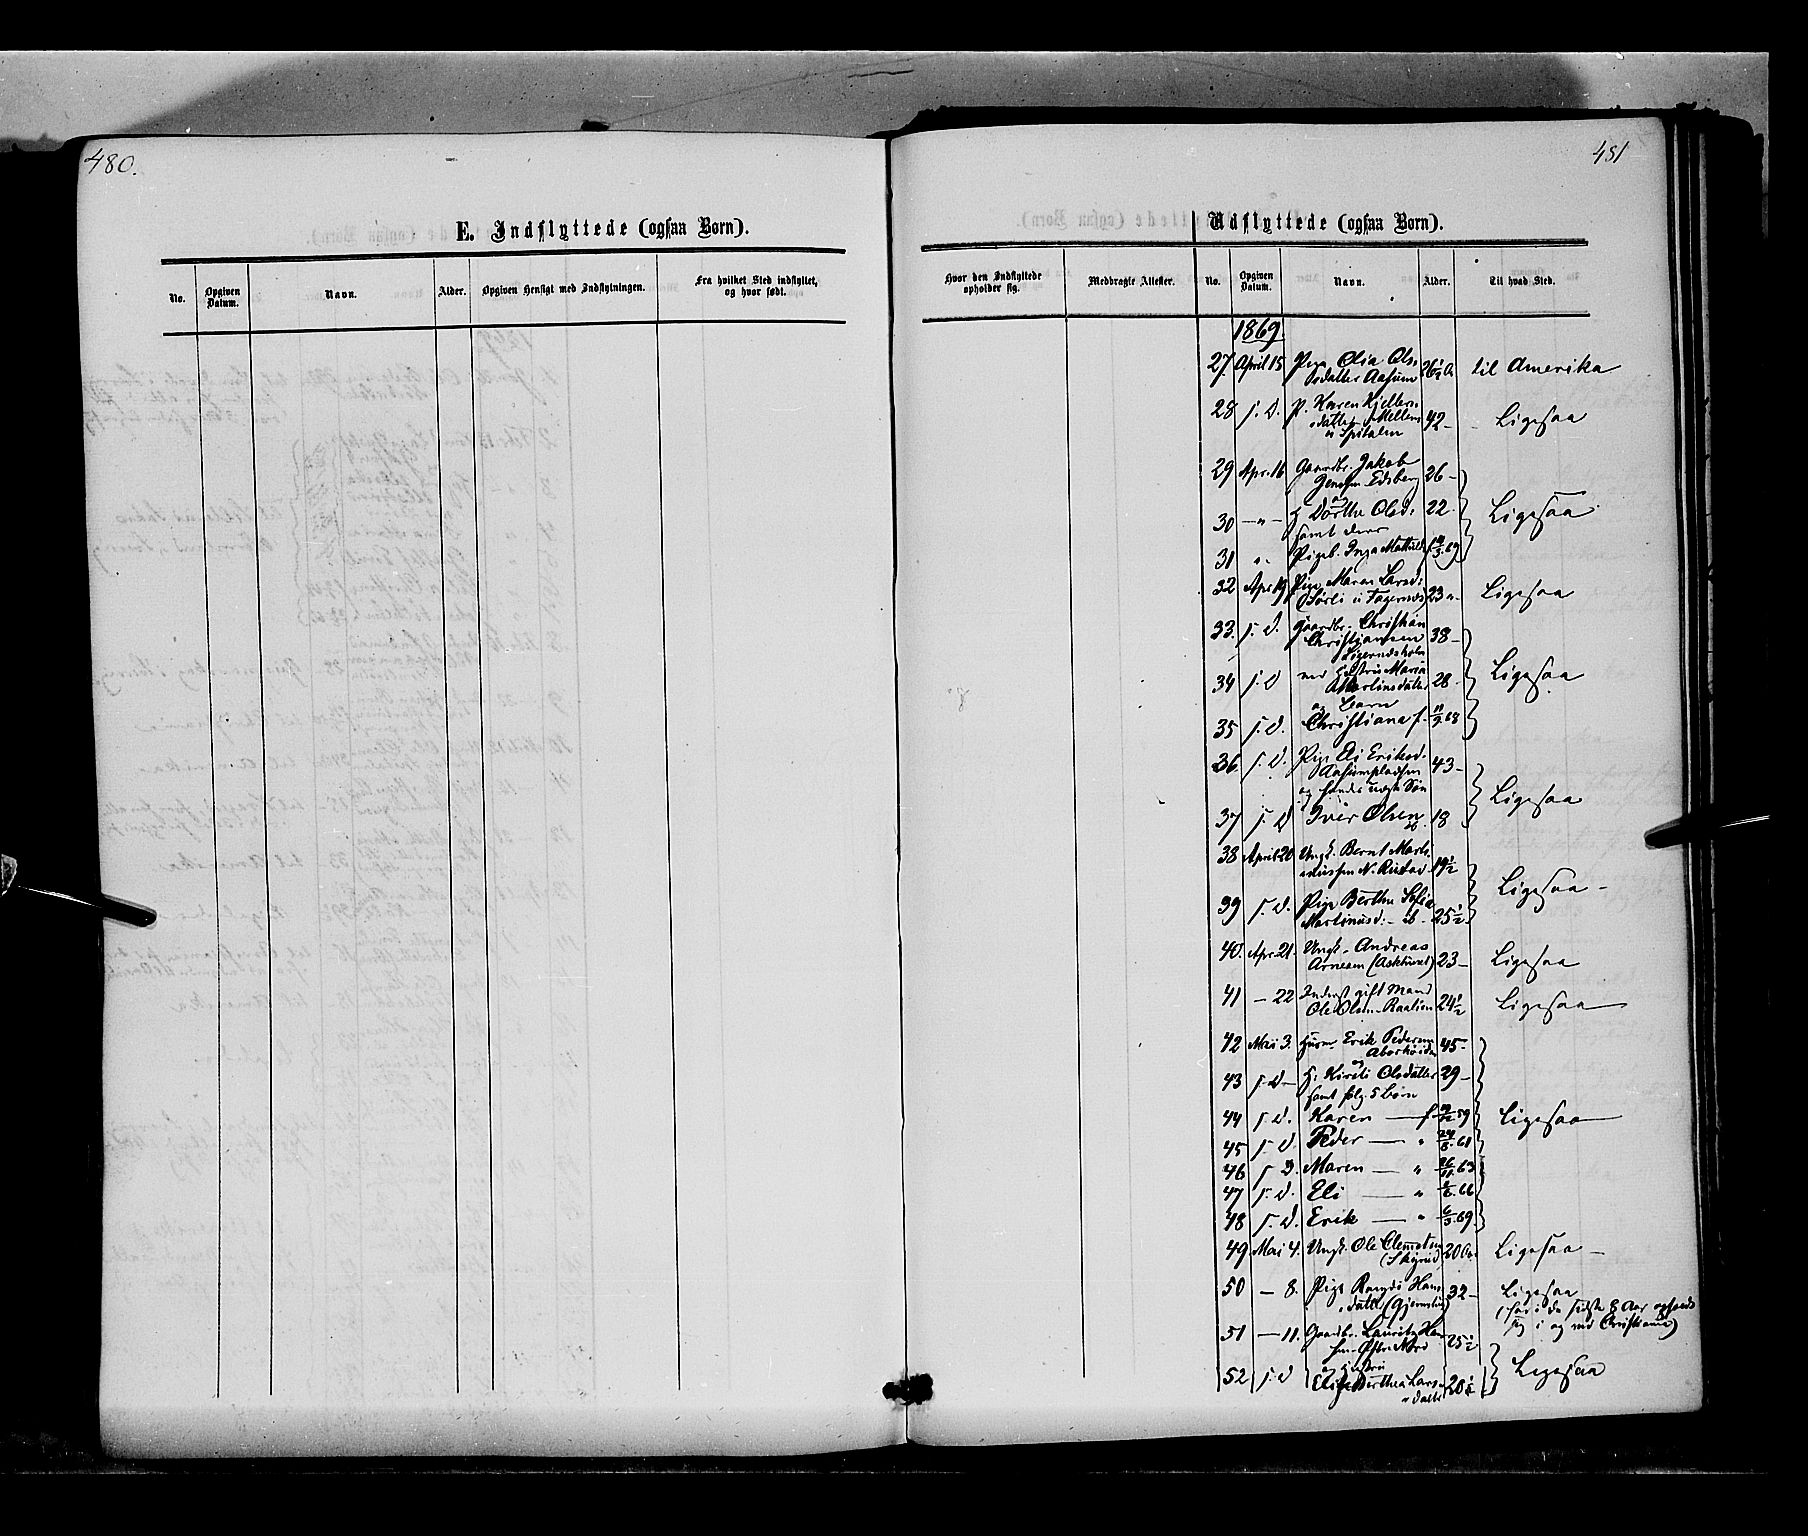 480.
E. Indflyttede (ogsaa Børn).
No.
Opgiven Datum.
Navn.
Alder.
Opgiven Hensigt med Indflytningen.
Fra hvilket Sted indflyttet, og hvor født.
481
Udflyttede (ogsaa Børn).
Hvor den Indflyttede opholder sig.
Medbragte Attester.
No.
Opgiven Datum.
Navn.
Alder.
Til hvad Sted.
1869.
27. April 15 Pige Olia Ols-
datter Aasum 26½ A. til Amerika
28 s. D. P. Karen Kjelder-
datter Mellem 42 - Ligesaa
u Spitalen
29 Apr. 16 Gaardbr. Jakob
Jensen Edsberg 26 -
og
30 - " - H. Dorthe Olsd: 22. Ligesaa
samt deres
31 " - Pigeb. Inga Mathild. f
32 Apr 19 Pige Maren Larsd:
(Sørli u Fagernæs) 23 - Ligesaa
33. s. D. Gaardbr. Christian
Christiansen 38 -
34 s. D med Hustru Maria
Martinsdatter 28 - Ligesaa
og Barn
35 s. D. Christiana f. 11/9 68
36 s. D. Pige Eli Eriksd.
Aasumpladsen 43 -
og hendes uægte Søn
37 s. D Iver Olsen 18 Ligesaa
ib.
38 April 20 Ungk. Bernt Marti-
niussen N. Rustad 19½
39 s. D. Pige Berthe Sofie
Martinusd: - ib - 25½ Ligesaa -
40. Apr. 21. Ungk. Andreas
Arnesen 23 - Ligesaa
41 - 22 Inderst gift Mand
Ole Olsen 24½ Ligesaa
42 Mai 3. Husm. Erik Pedersen 45 -
og
43 s. D - H. Kirsti Olsdatter 29 -
samt følg. 5 Børn
44 s. D. Karen - f. 59 Ligesaa
45 s. D. Peder - " 24/8 61
46 s. D. Maren - " 26/11 63
47 s. D. Eli - " 66
48 s. D. Erik - " 6/3 69
49 Mai 4. Ungk. Ole Clemetsen 20 Aar Ligesaa -
50 - 8. Pige Randi Hans-
datter 32 - Ligesaa
(har i de sidste 8 Aar opholdt
sig i og ved Christiania)
51 - 11. Gaardbr. Lauritz Han-
sen Østre Alm 25½
og Hustru
52 s. D Elise Berthea Lars-
datter 20½ Ligesaa